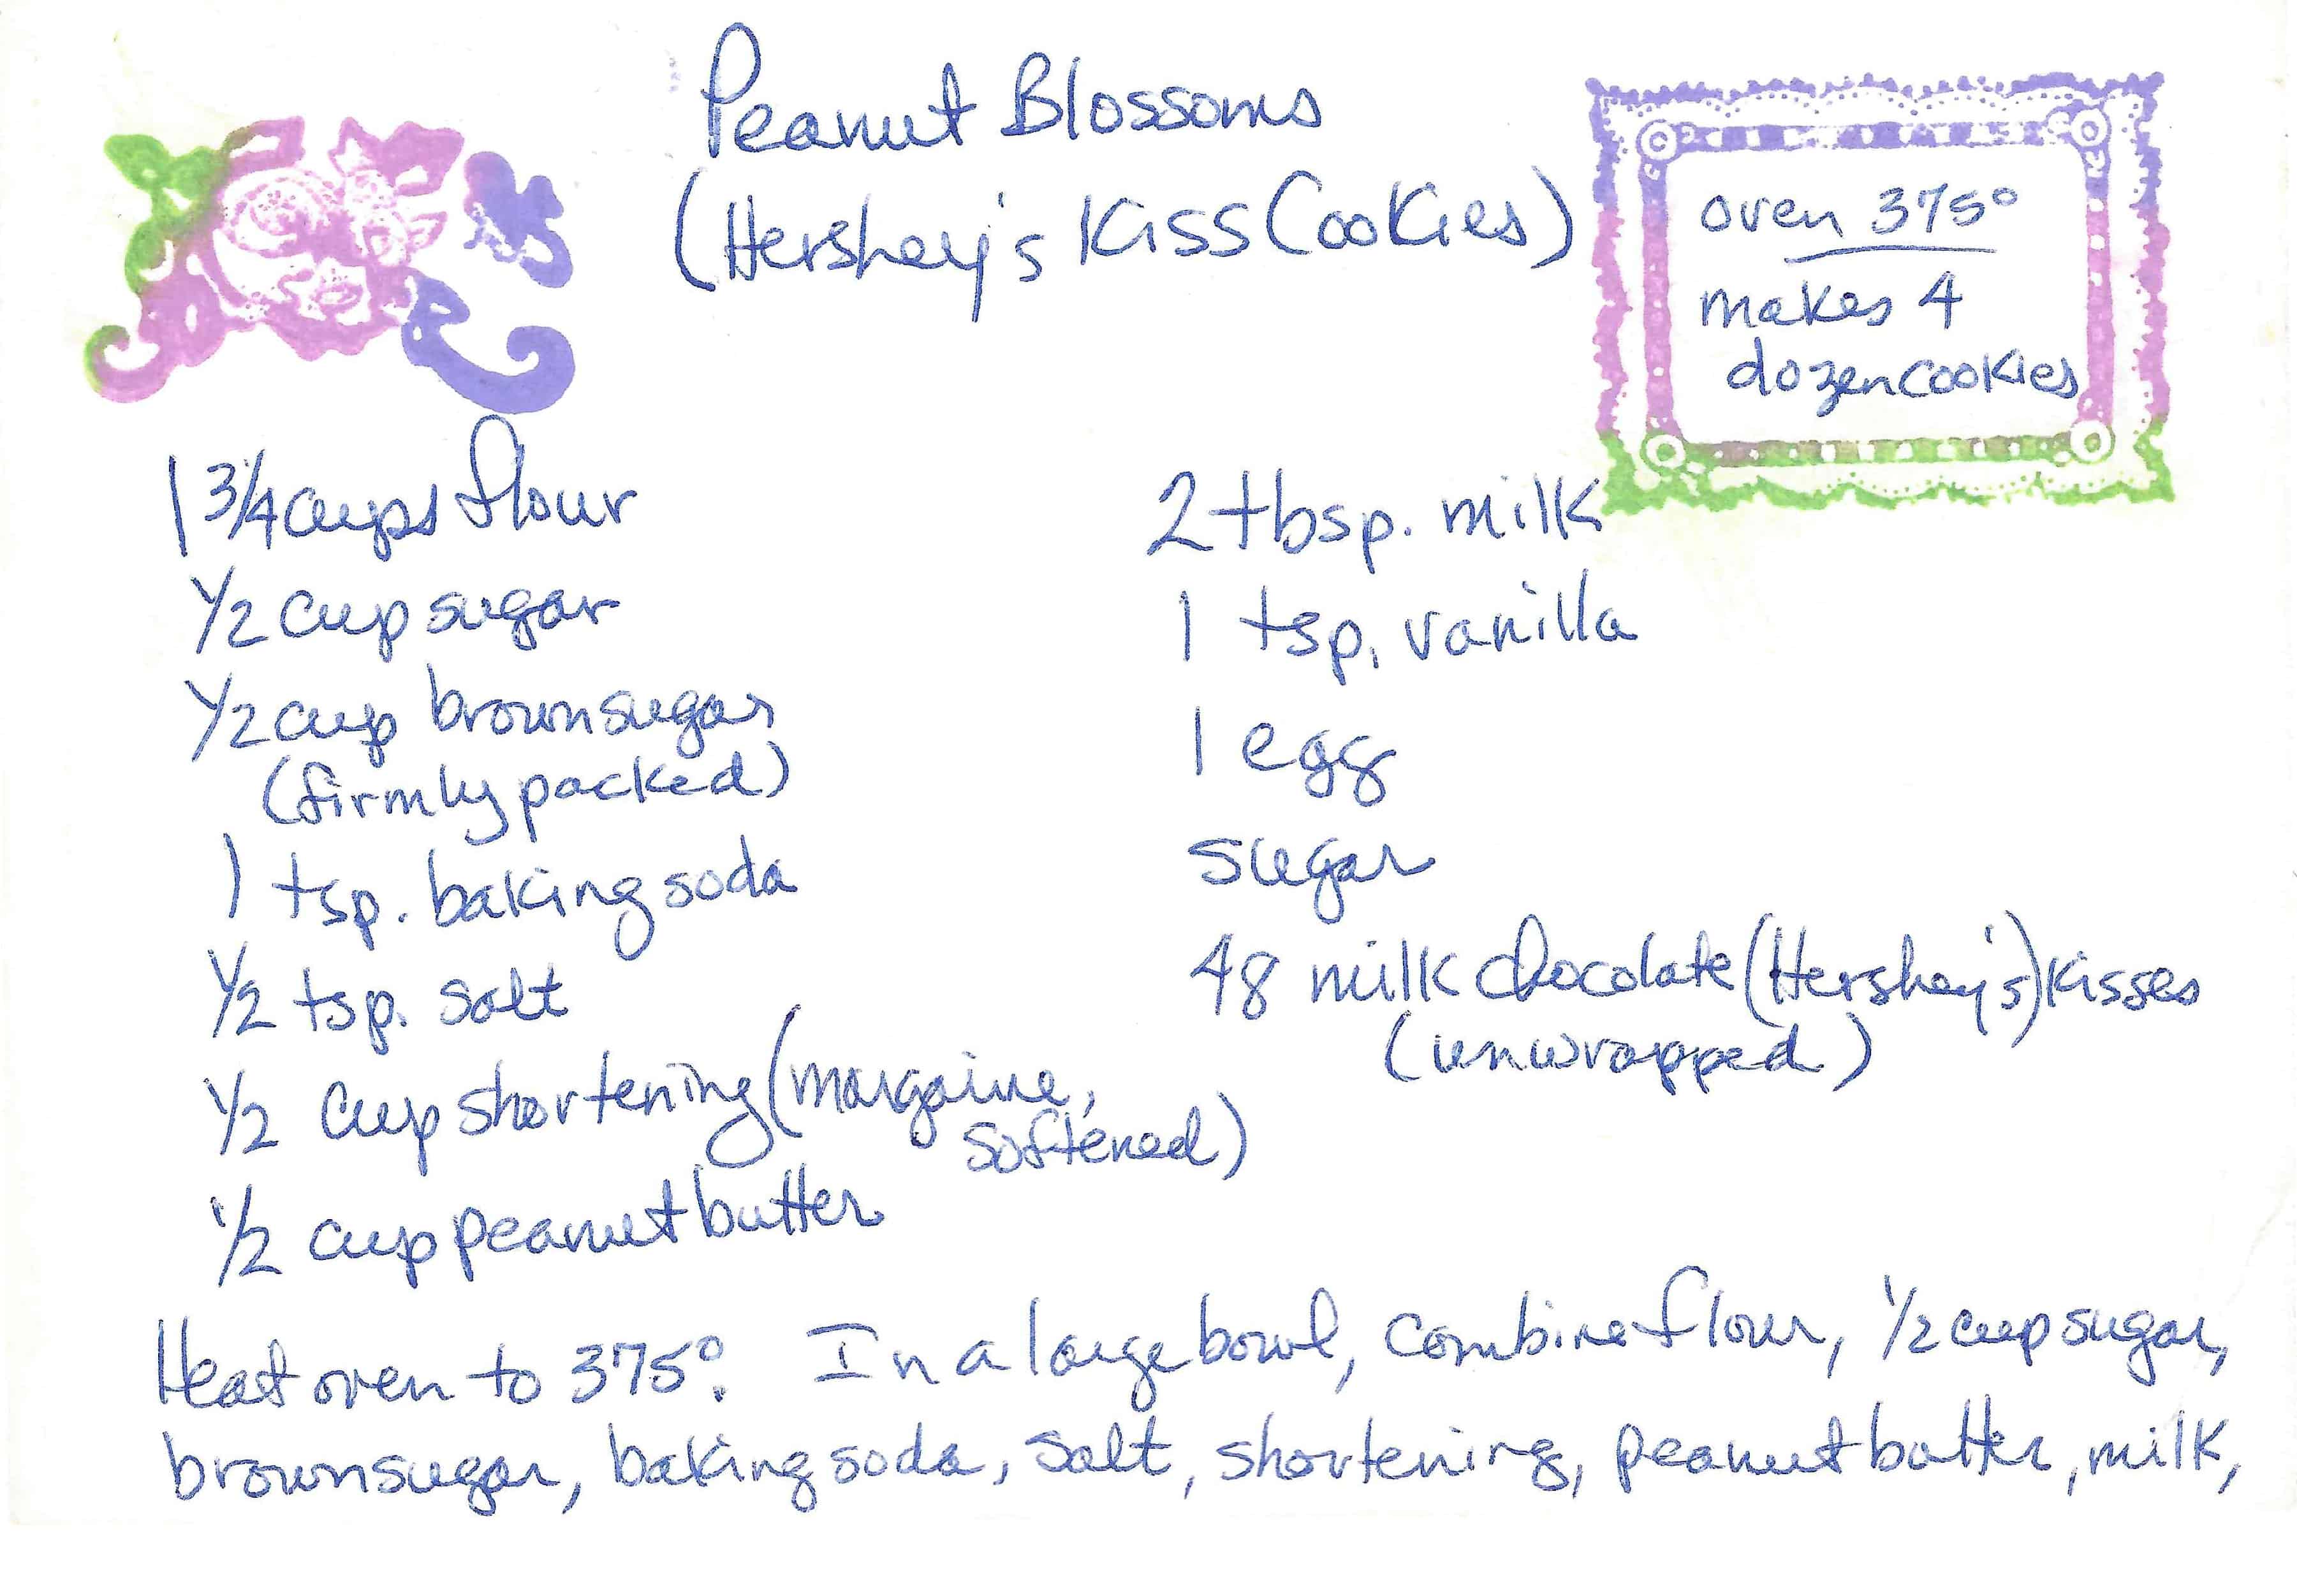 Peanut Blossoms
(Hershey's Kiss Cookies)
oven 375°
makes 4
dozen cookies
1 3/4 cups flour
1/2 cup sugar
1/2 cup brown sugar
(firmly packed)
1 tsp. baking soda
1/2 tsp. salt
1/2 cup shortening (margarine,
softened)
1/2 cup peanut butter
2 tbsp. milk
1 tsp. vanilla
1 egg
sugar
48 milk chocolate (Hershey's) Kisses
(unwrapped)
Heat oven to 375°. In a large bowl, combine flour, 1/2 cup sugar,
brown sugar, baking soda, salt, shortening, peanut butter, milk,